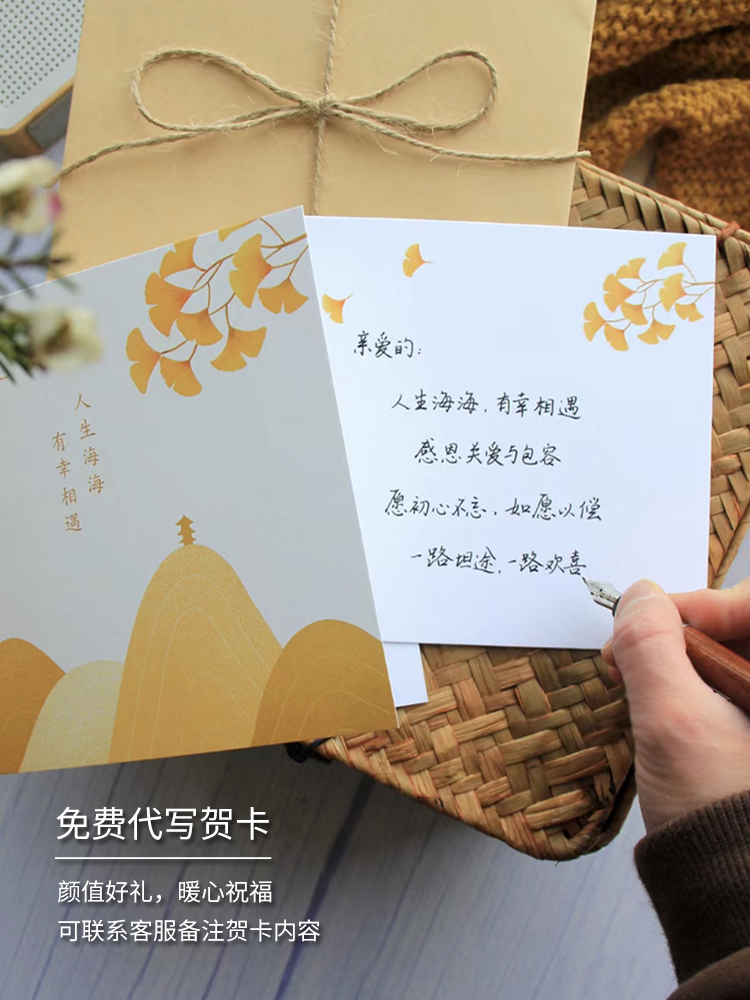 人生海海
有幸相遇
亲爱的:
人生海海,有幸相遇
感恩关爱与包容
愿初心不忘,如愿以偿
一路坦途,一路欢喜
免费代写贺卡
颜值好礼，暖心祝福
可联系客服备注贺卡内容